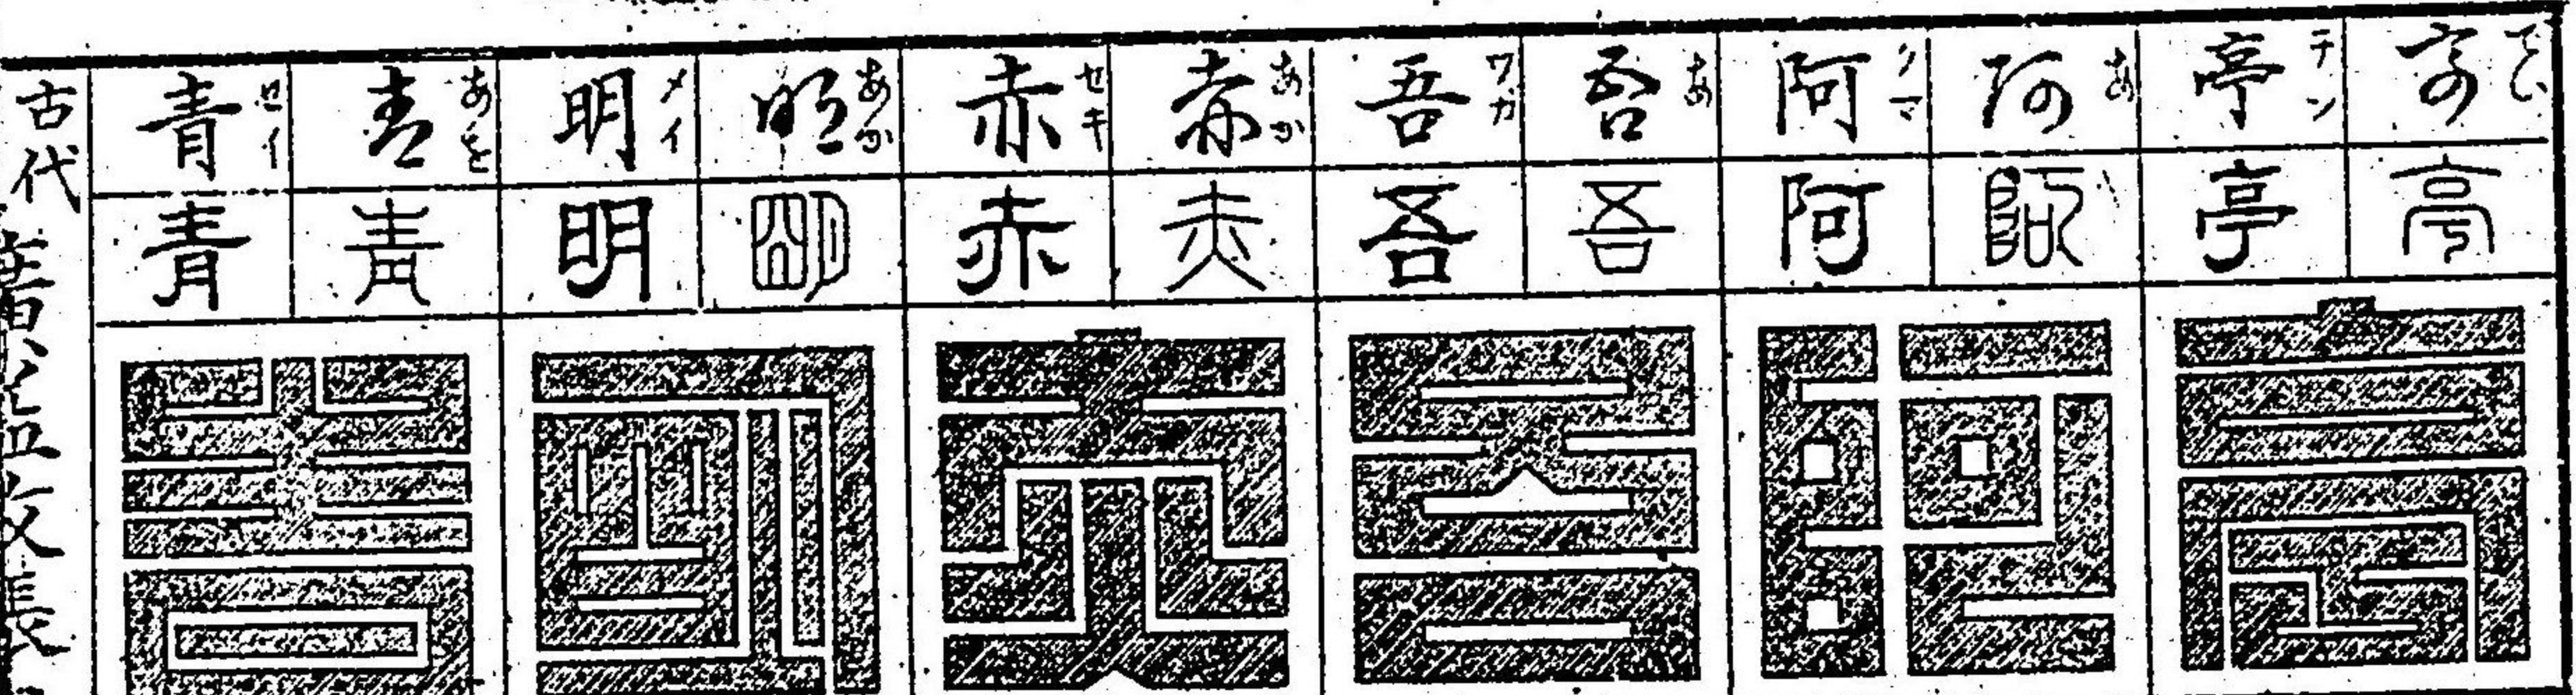 てい 亭 テン 亭
あ 阿 クマ 阿
あ 吾 ワガ 吾
あか 赤 セキ 赤
あか 明 メイ 明
あを 青 セイ 青
亭 亭 阿 阿 吾 吾 赤 赤 明 明 青 青
亭 阿 吾 赤 明 青
古代